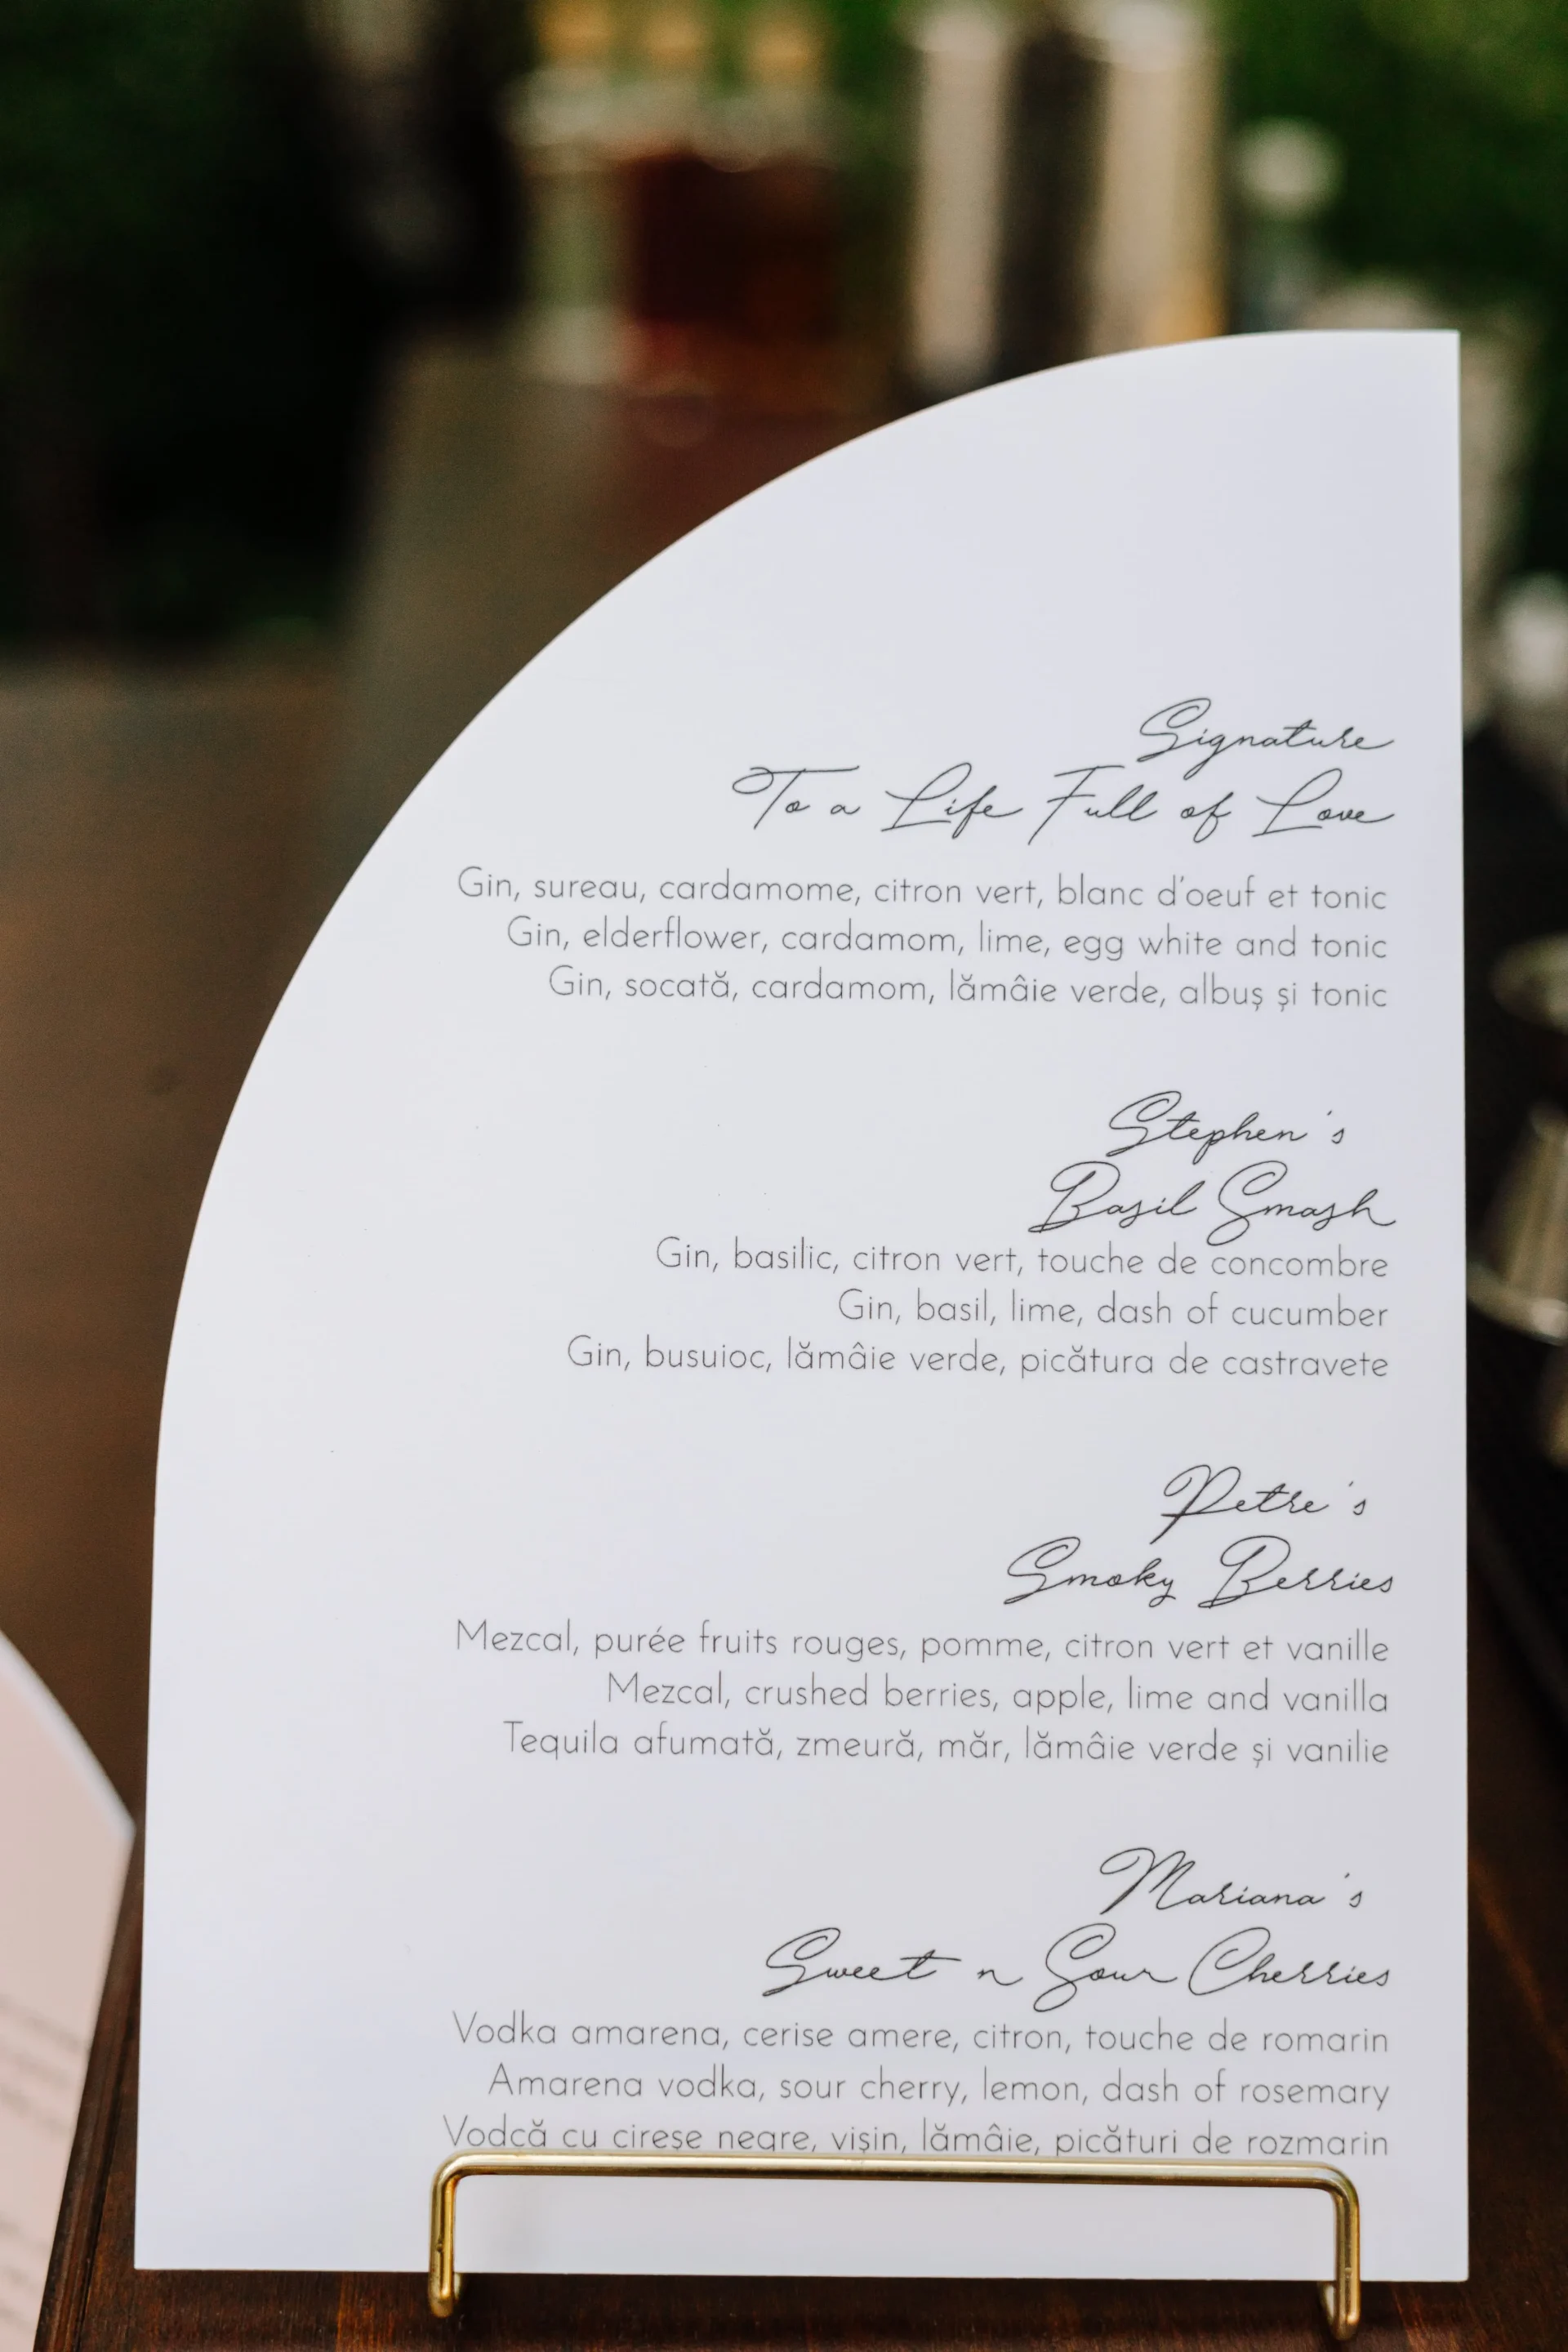 Signature
To a Life Full of Love
Gin, sureau, cardamome, citron vert, blanc d'oeuf et tonic
Gin, elderflower, cardamom, lime, egg white and tonic
Gin, socată, cardamom, lămâie verde, albuș și tonic
Stephen's
Basil Smash
Gin, basilic, citron vert, touche de concombre
Gin, basil, lime, dash of cucumber
Gin, busuioc, lămâie verde, picătura de castravete
Petre's
Smoky Berries
Mezcal, purée fruits rouges, pomme, citron vert et vanille
Mezcal, crushed berries, apple, lime and vanilla
Tequila afumată, zmeură, măr, lămâie verde și vanilie
Mariana's
Sweet n Sour Cherries
Vodka amarena, cerise amere, citron, touche de romarin
Amarena vodka, sour cherry, lemon, dash of rosemary
Vodcă cu cireșe negre, vișin, lămâie, picături de rozmarin